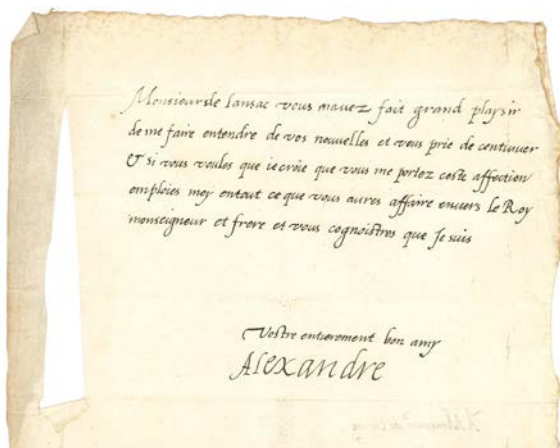 Monsieur de Lansac vous mavez fait grand playsir
de me faire entendre de vos nouuelles et vous prie de continuer
Et si vous voules que ie croie que vous me portez ceste affection
emploies moy entout ce que vous aures affaire enuers le Roy
monseigneur et frere et vous cognoistres que Je suis
Vostre entierement bon amy
Alexandre